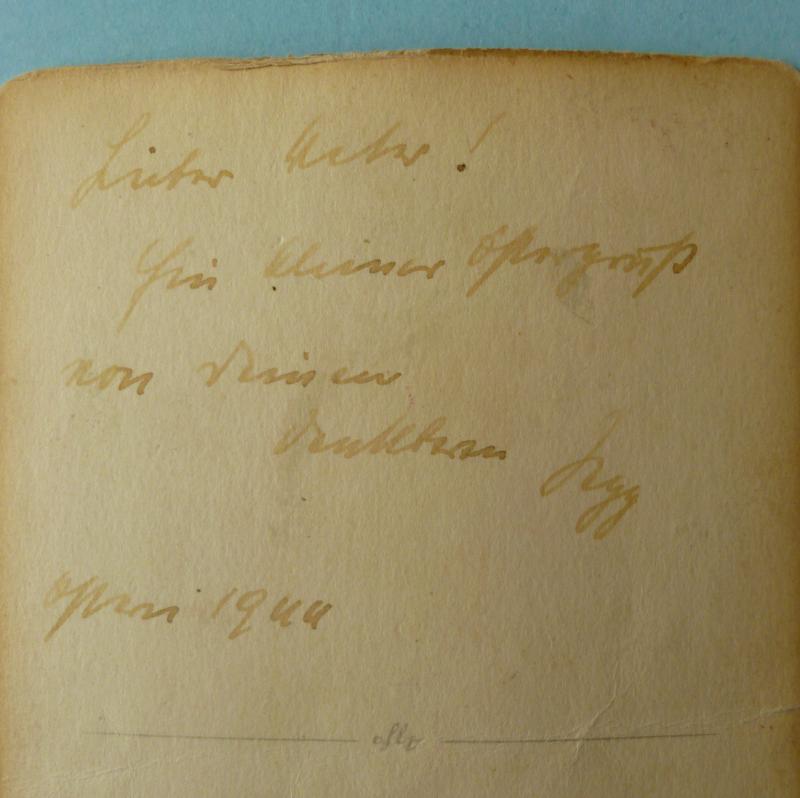 Lieber Vater!
Ein kleiner Ostergruß
von Deinem
dankbaren
Ostern 1944